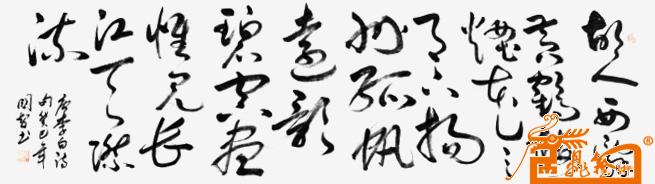 故人西辞
黄鹤楼
烟花三
月下扬
州孤帆
远影
碧空尽
惟见长
江天际
流
唐李白诗
句癸巳年
国智书